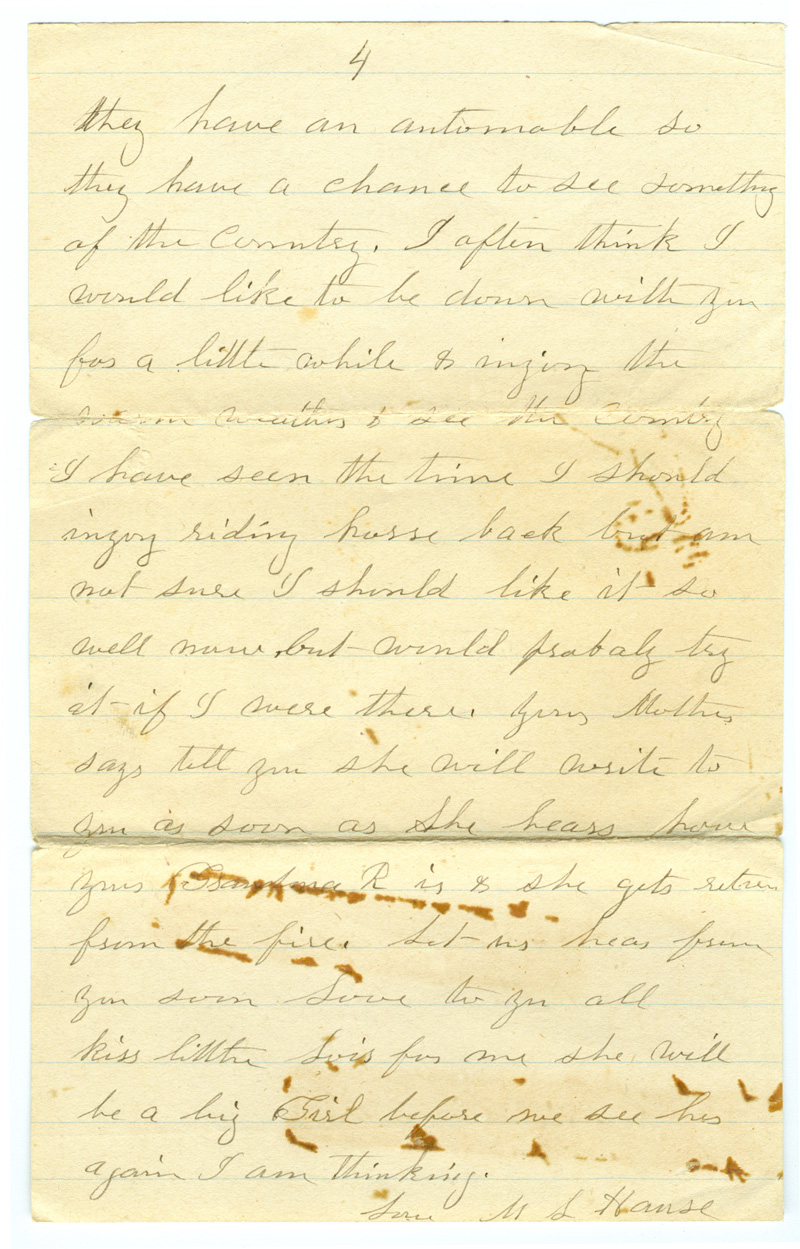 4
they have an automoble so
they have a chance to see something
of the Comntry. I often think I
would like to be down with you
for a little while & injoy the
warm weather & see the Comtry
I have seen the time I should
injoy riding horse back but am
not sure I should like it so
well now, but would probaly try
it if I were there. Your Mother
says tell you she will write to
you as soon as She hears how
your Grandma R is & she gets return
from the fire. Let us hear from
you soon Love to you all
kiss litthe Lois for me she will
be a big Girl before we see her
again I am thinking.
Love M L Hause